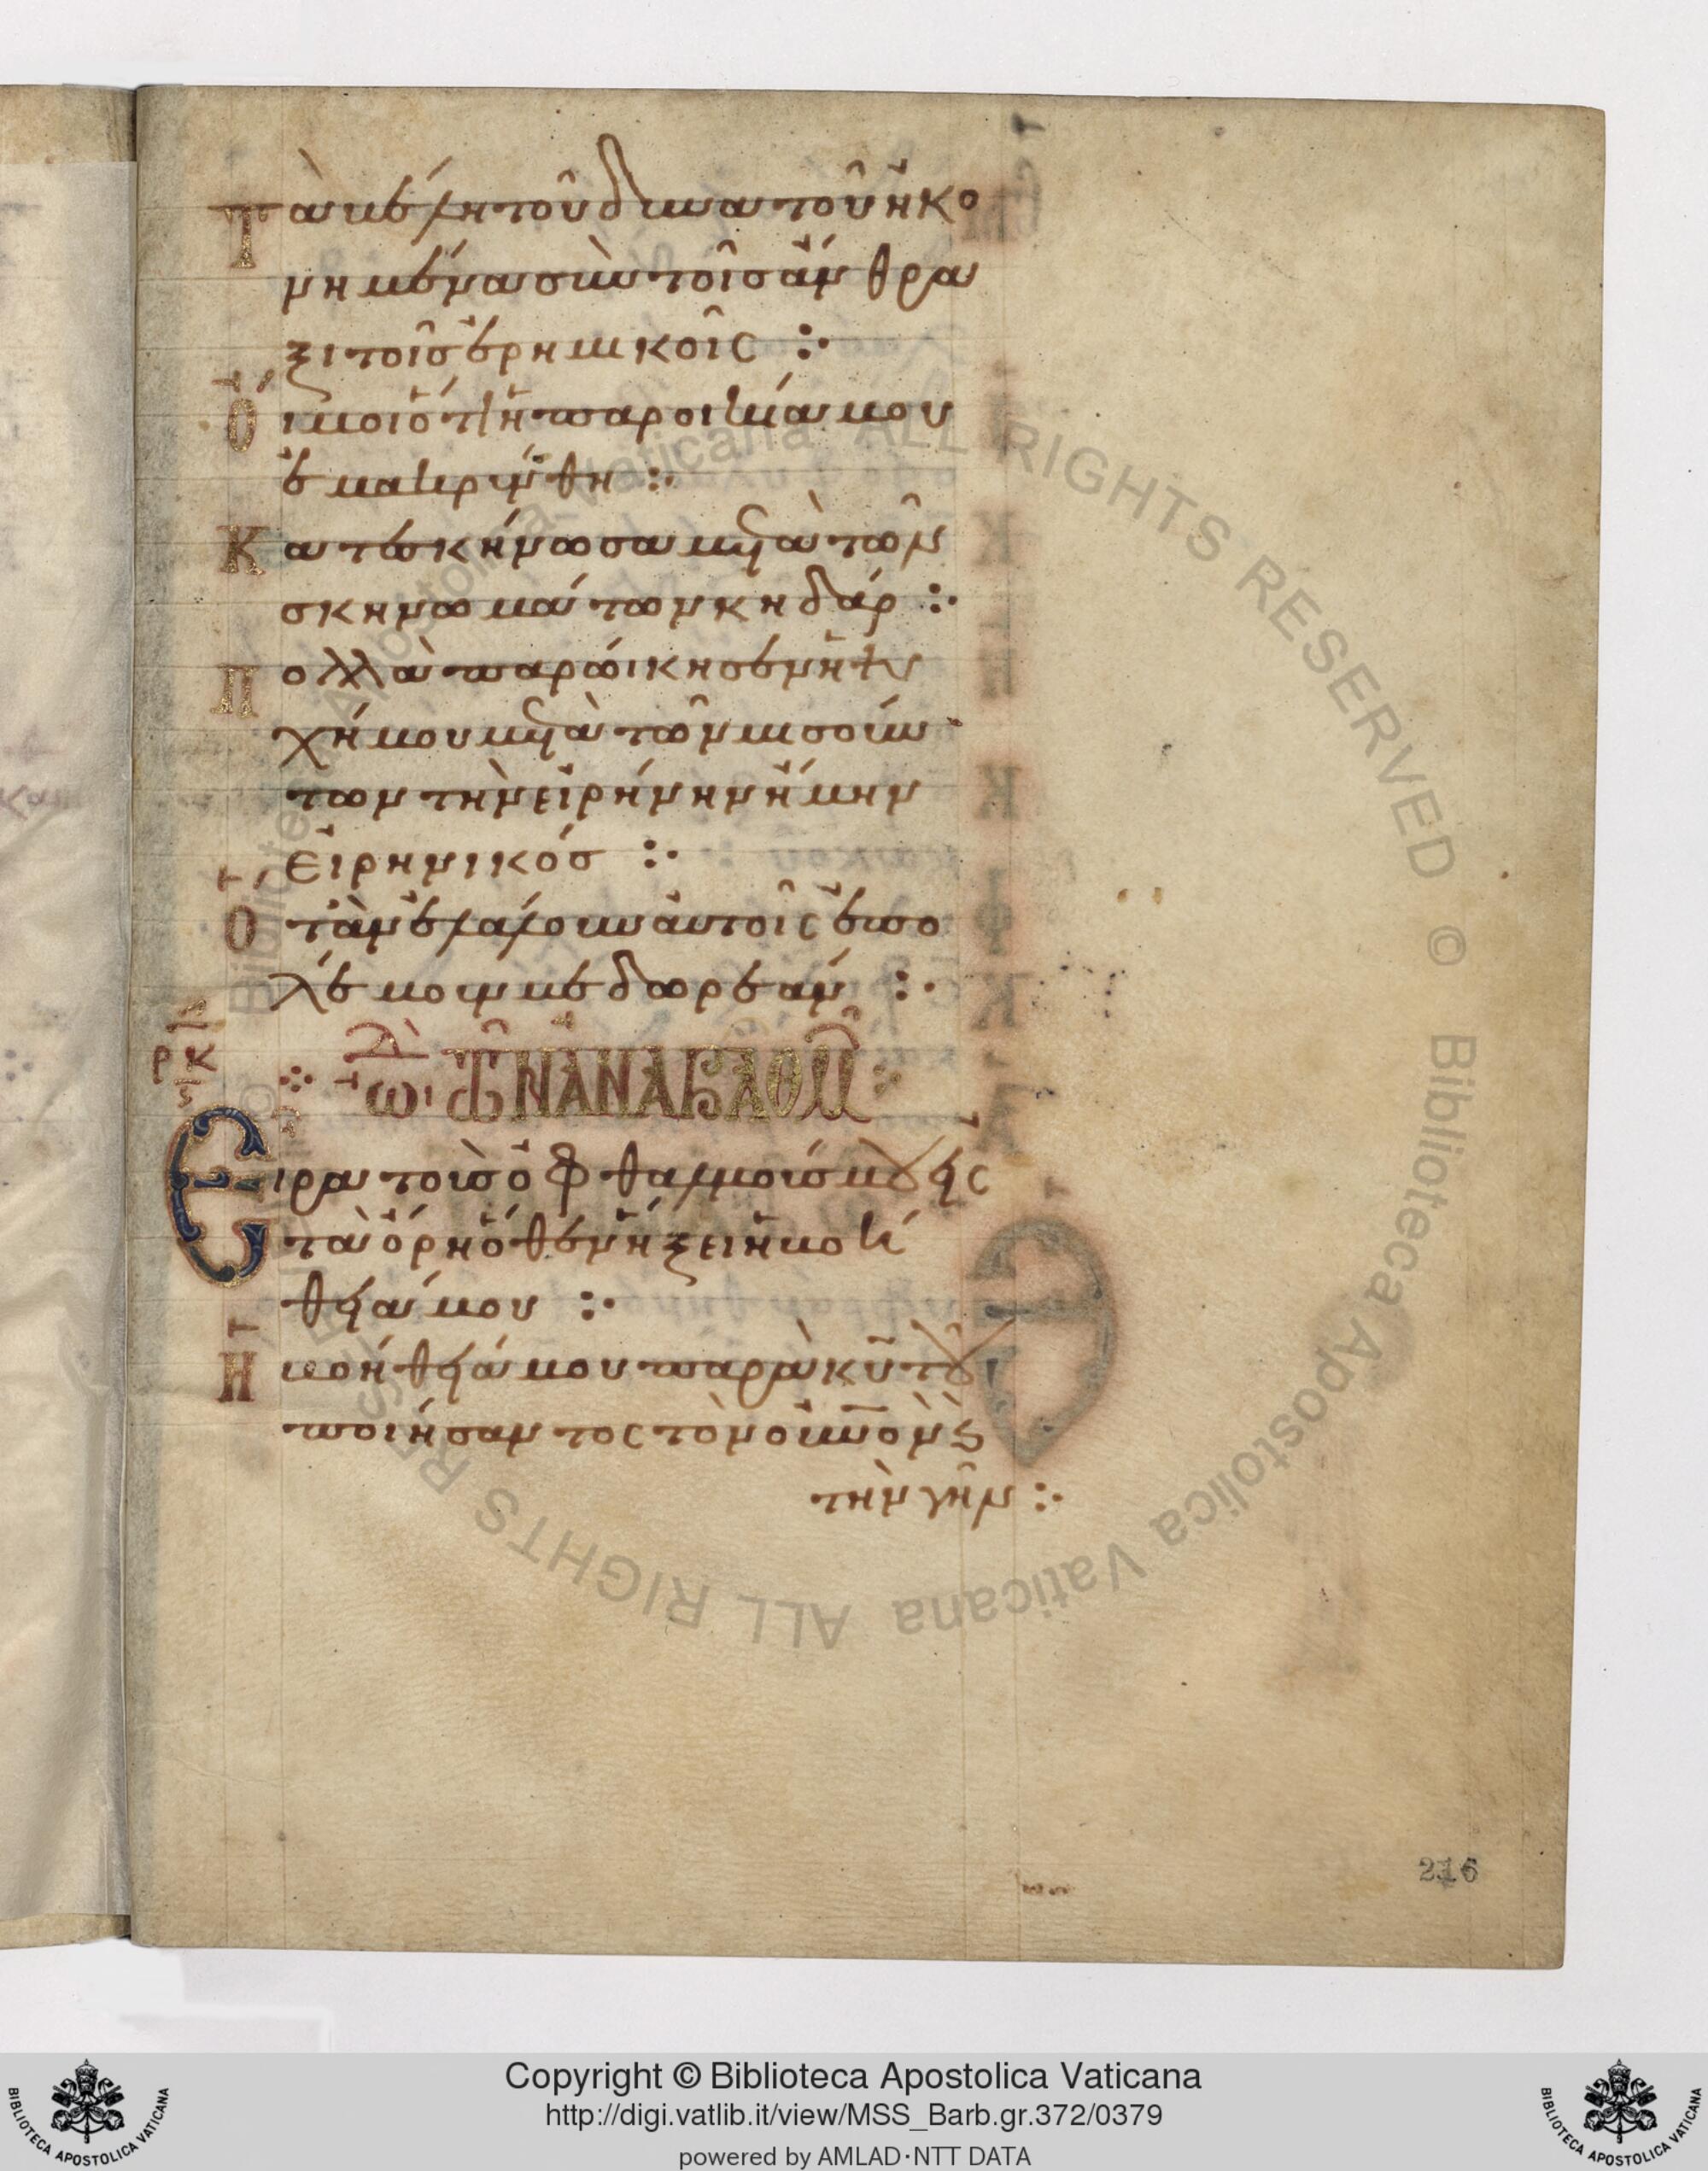 Τὰ βέλη τοῦ δυνατοῦ ἠκο
νημένα σὺν τοῖς ἄνθρα
ξι τοῖς ἐρημικοῖς :·
Οἴμοι ὅτι ἡ παροικία μου
ἐμακρύνθη :·
Κατεσκήνωσα μετὰ τῶν
σκηνωμάτων κηδάρ :·
Πολλὰ παρώικησεν ἡ ψυ
χή μου μετὰ τῶν μισούν
των τὴν εἰρήνην ἤμην
εἰρηνικός :·
Ὅταν ἐλάλουν αὐτοῖς ἐπο
λέμουν με δωρεάν :·
ρκ
ωιδὴ τῶν ἀναβαθμῶν
Ἦρα τοὺς ὀφθαλμούς μου εἰς
τὰ ὄρη ὅθεν ἥξει ἡ βοή
θειά μου :·
Ἡ βοήθειά μου παρὰ κυ του
ποιήσαντος τὸν οὐνον καὶ
τὴν γῆν :·
216
Copyright © Biblioteca Apostolica Vaticana
http://digi.vatlib.it/view/MSS_Barb.gr.372/0379
powered by AMLAD·NTT DATA
BIBLIOTECA APOSTOLICA VATICANA
BIBLIOTECA APOSTOLICA VATICANA
© Biblioteca Apostolica Vaticana ALL RIGHTS RESERVED
© Biblioteca Apostolica Vaticana ALL RIGHTS RESERVED